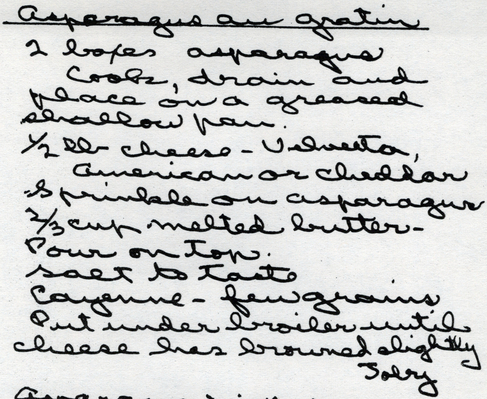 Asparagus au gratin
2 boxes asparagus
Cook, drain and
place on a greased
shallow pan.
1/2 lb cheese - Velveeta,
American or cheddar
Sprinkle on asparagus
2/3 cup melted butter -
Pour on top.
Salt to taste
Cayenne - few grains
Put under broiler until
cheese has browned slightly